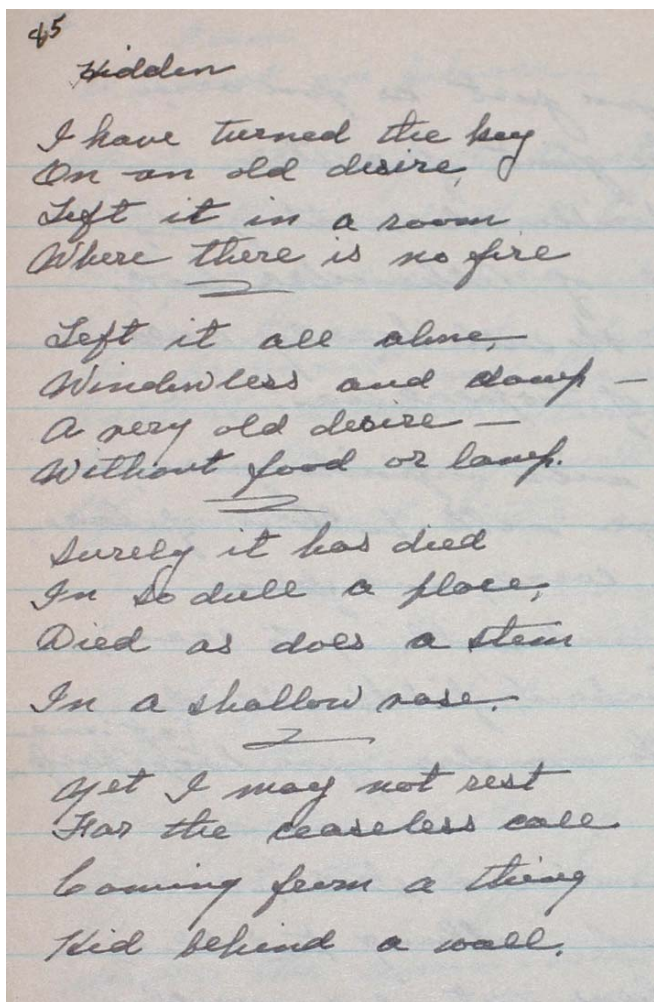 45
Hidden
I have turned the key
On an old desire,
Left it in a room
Where there is no fire
Left it all alone,
Windowless and damp —
A very old desire —
Without food or lamp.
Surely it has died
In so dull a place,
Died as does a stem
In a shallow vase.
Yet I may not rest
For the ceaseless call
Coming from a thing
Hid behind a wall.